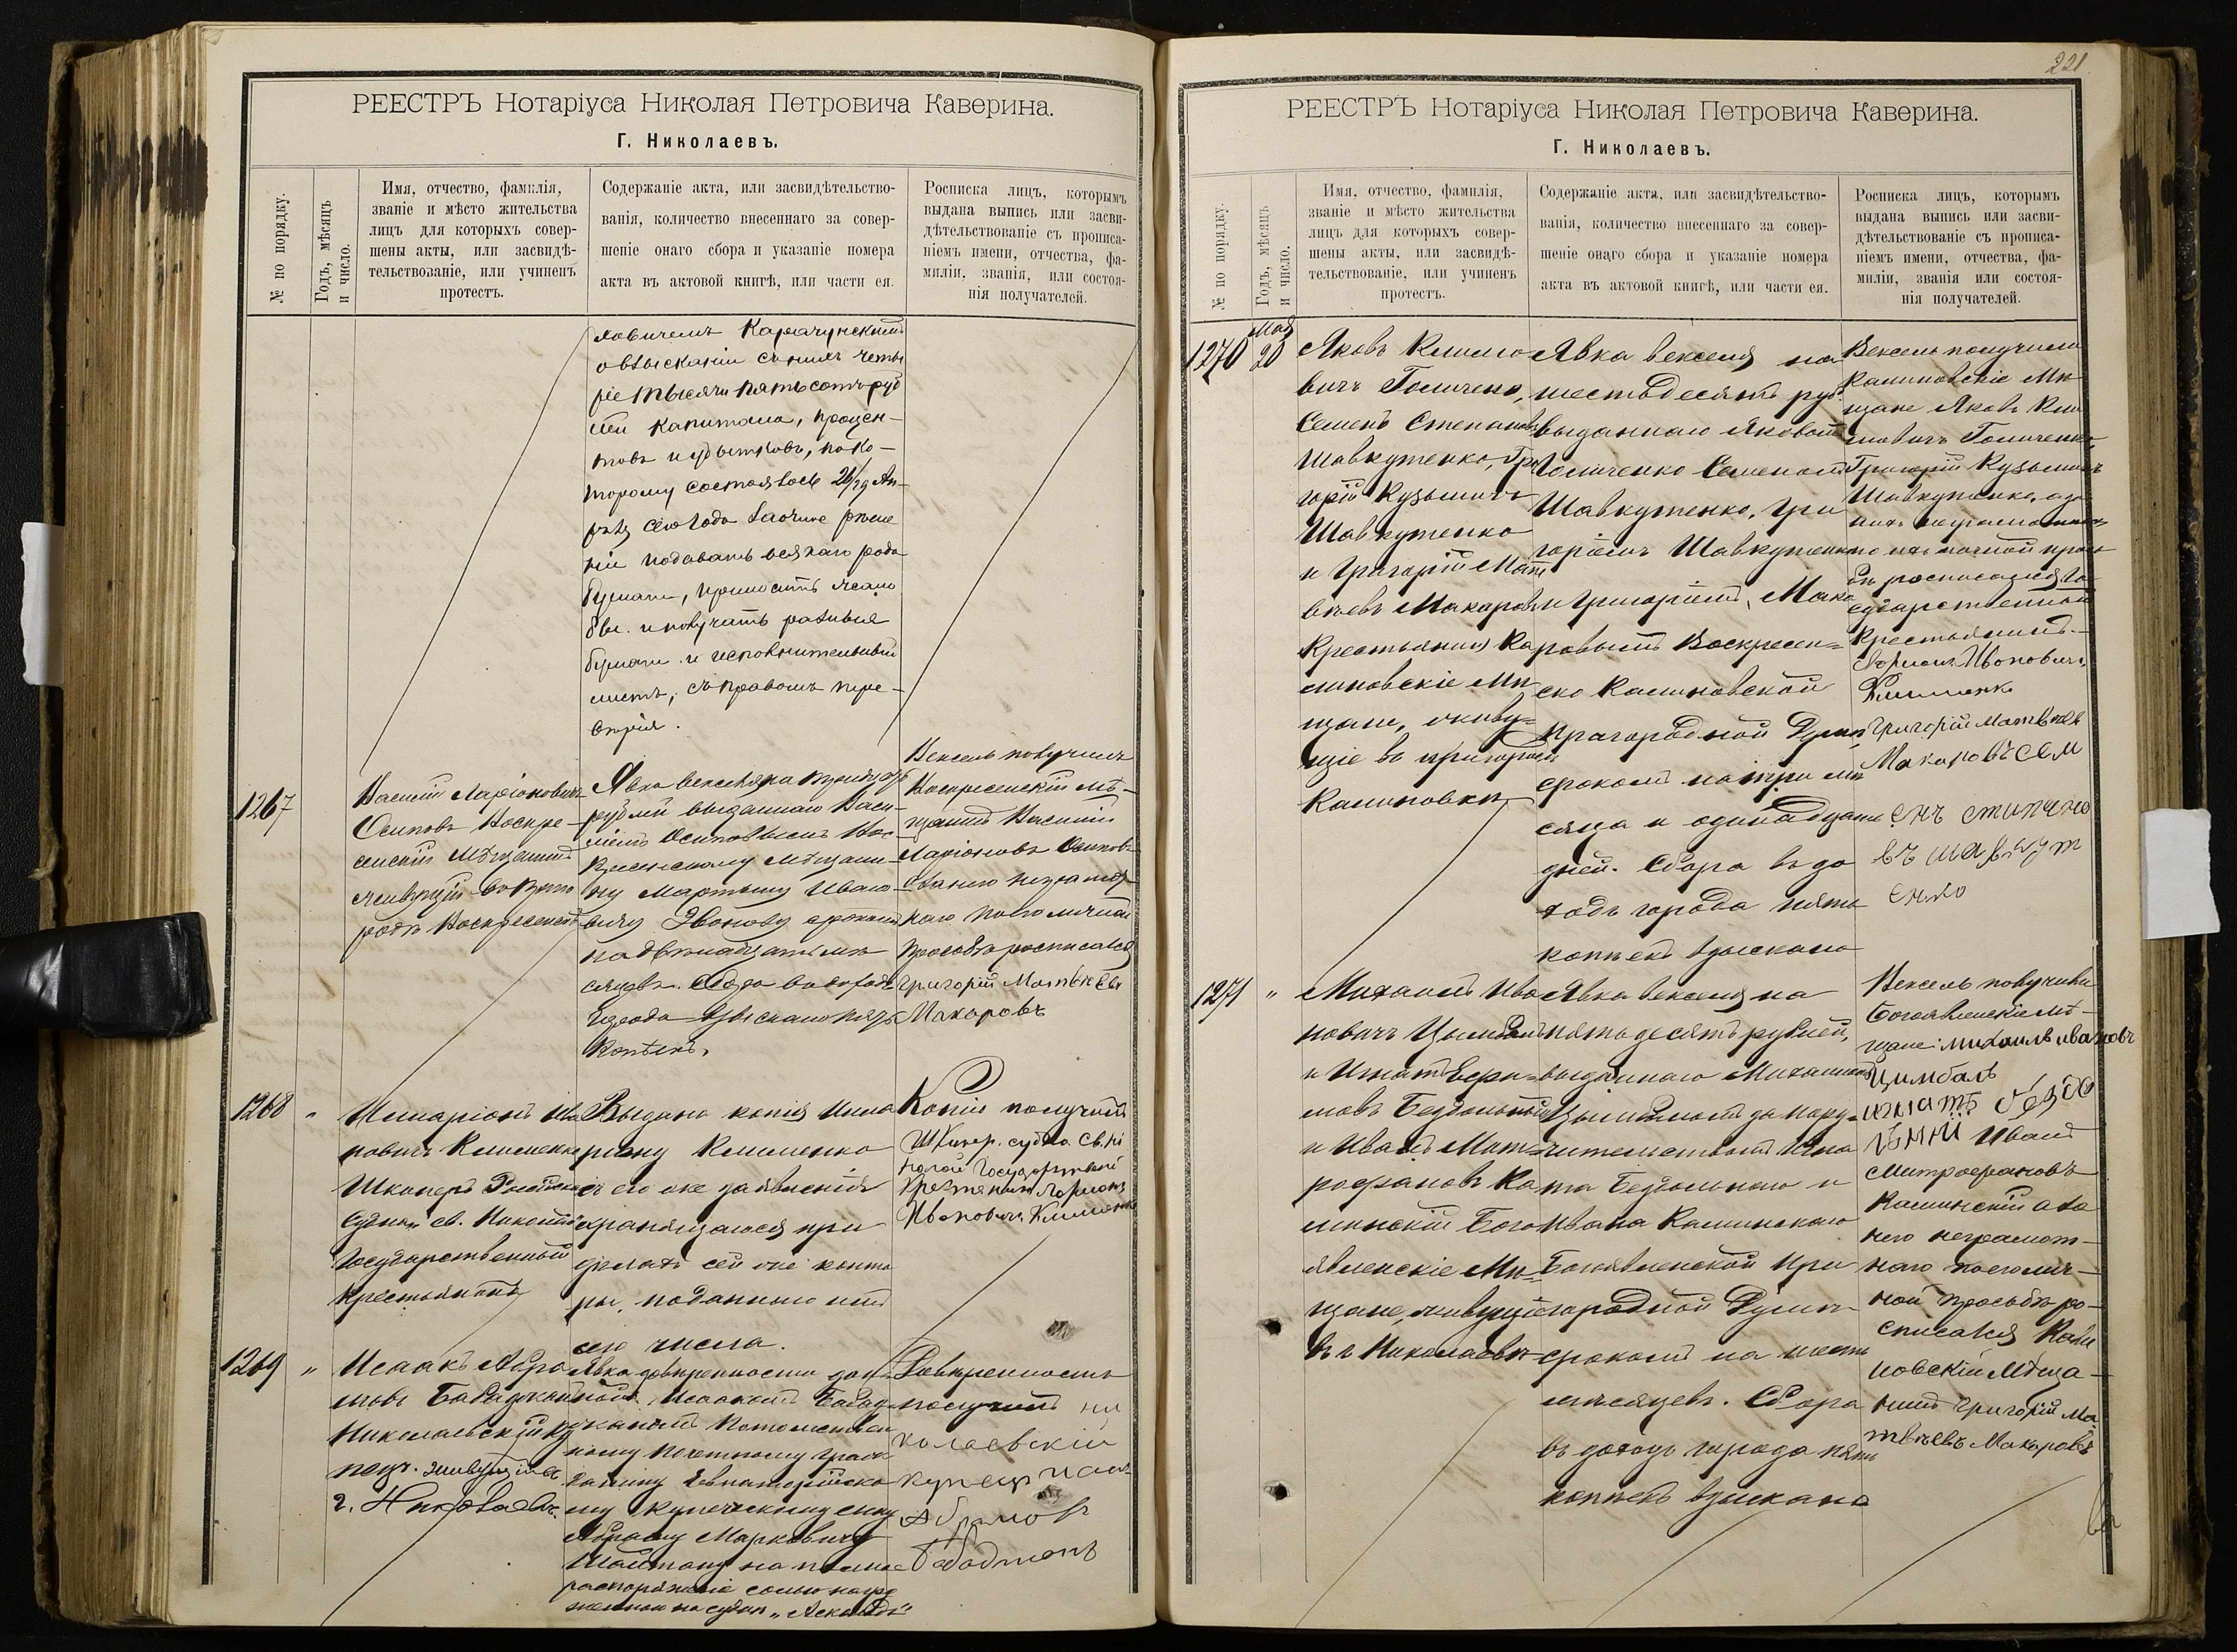 РЕЕСТРЪ Нотаріуса Николая Петровича Каверина.
Г. Николаевъ.
№ по порядку.
Годъ, мѣсяцъ
и число.
Имя, отчество, фамилія,
званіе и мѣсто жительства
лицъ для которыхъ совер-
шены акты, или засвидѣ-
тельствованіе, или учиненъ
протестъ.
Содержаніе акта, или засвидѣтельство-
ванія, количество внесеннаго за совер-
шеніе онаго сбора и указаніе номера
акта въ актовой книгѣ, или части ея.
Росписка лицъ, которымъ
выдана выпись или засви-
дѣтельствованіе съ прописа-
ніемъ имени, отчества, фа-
миліи, званія, или состоя-
нія получателей.
ловичемъ Карачунскимъ
о взысканіи съ нихъ четы
ре тысячи пятьсотъ руб
лей капитала, процен-
товъ и убытковъ, по ко-
торому состоялось 21/29 Ап-
рѣля сего года заочное рѣше
ніе подавать всякаго рода
бумаги, приносить жало
бы и получать разныя
бумаги и исполнительный
листъ, съ правомъ пере-
вѣрія.
1267
Василій Ларіоновичъ
Осиповъ Воскре-
сенскій мѣщанинъ
живущій въ
Воскресенскѣ
Явка векселя на тридцать
рублей выданнаго Васи-
ліемъ Осиповымъ Вос
кресенскому мѣщани-
ну Мартыну Ивано-
вичу Звонову срокомъ
на двѣнадцать мѣ
сяцевъ. Сбора въ доходъ
города взыскано пять
копѣекъ.
Вексель получилъ
Воскресенскій мѣ-
щанинъ Василій
Ларіоновъ Осиповъ
за него неграмот
наго по его личной
просьбѣ росписался
Григорій Матвѣевъ
Макаровъ
1268 "
Илларіонъ Ива
новичъ Клименко
Шкиперъ Россійскаго
Судна „св. Николай"
Государственный
крестьянинъ
Выдана копія Илла
ріону Клименко
съ его же заявленія
хранящагося при
дѣлахъ сей же конто
ры, поданнаго имъ
сего числа.
Копію получилъ
Шкипер. судна Св. Ни
колай Государственый
Крестянинъ Ларионъ
Ивановичъ Клименко
1269 "
Исаакъ Абра
мовъ Бабаджанъ
Николаевскій ку
пецъ. живущій въ
г. Николаевѣ.
Явка довѣренности дан-
ной Исаакомъ Бабад
жаномъ Потомствен
ному почетному граж
данину Евпаторійско
му купеческому сыну
Абраму Марковичу
на полное
распоряженіе солью нагру
женною на судно „Аскольдъ"
Довѣренность
получилъ Ни
колаевскій
купецъ Исаакъ
Абрамовъ
Бабаджанъ
221
РЕЕСТРЪ Нотаріуса Николая Петровича Каверина.
Г. Николаевъ.
№ по порядку.
Годъ, мѣсяцъ
и число.
Имя, отчество, фамилія,
званіе и мѣсто жительства
лицъ для которыхъ совер-
шены акты, или засвидѣ-
тельствованіе, или учиненъ
протестъ.
Содержаніе акта, или засвидѣтельство-
ванія, количество внесеннаго за совер-
шеніе онаго сбора и указаніе номера
акта въ актовой книгѣ, или части ея.
Росписка лицъ, которымъ
выдана выпись или засви-
дѣтельствованіе съ прописа-
ніемъ имени, отчества, фа-
миліи, званія или состоя-
нія получателей.
1270
Мая
20
Яковъ Климо
вичъ Голиченко,
Семенъ Степановъ
Шавкутенко, Гри
горій Кузьмичъ
Шавкутенко
и Григорій Мат
вѣевъ Макаровъ
Крестьянинъ Ка
линовскіе мѣ
щане, живу=
щіе въ пригородѣ
Калиновкѣ
Явка векселя на
шестьдесятъ руб.
выданнаго Яковомъ
Голиченко Семеномъ
Шавкутенко, Гри
горіемъ Шавкутенко
и Григоріемъ Мака
ровымъ Воскресен=
ско Калиновской
Пригородной Думѣ,
срокомъ на три мѣ
сяца и одинадцать
дней. Сбора въ до
ходъ города пять
копѣекъ взыскано
Вексель получили
Калиновскіе мѣ
щане Яковъ Кли
мовичъ Голиченко,
Григорій Кузьмичъ
Шавкутенко, а за
нихъ неграмотныхъ
по ихъ личной прось
бѣ росписался Го
сударственный
Крестьянинъ
Ларионъ Ивановичъ
Клименко
Григорій Матвѣевъ
Макаровъ Сем
енъ степано
въ шавкут
енко
1271 "
Михаилъ Ива
новичъ Цымбалъ
и Игнатъ Ефи=
мовъ Бездольный
и Иванъ Мит=
рофановъ Ка
линскій Бого
явленскіе мѣ=
щане, живущіе
въ г. Николаевѣ
Явка векселя на
пятьдесятъ рублей,
выданнаго Михаиломъ
Цымбаломъ за пору=
чительствомъ Игна
та Бездольнаго и
Ивана Калинскаго
Богоявленской При
городной Думѣ
срокомъ на шесть
мѣсяцевъ. Сбора
въ доходъ города пять
копѣекъ взыскано
Вексель получили
Богоявленскіе мѣ-
щане: Михаилъ ивановъ
Цимбалъ
игнатъ бездо
Иванъ
Митрофановъ
Калинскій а за
него неграмот-
наго по его лич-
ной просьбѣ ро-
списался Кали
новскій мѣща-
нинъ Григорій Ма
твѣевъ Макаровъ